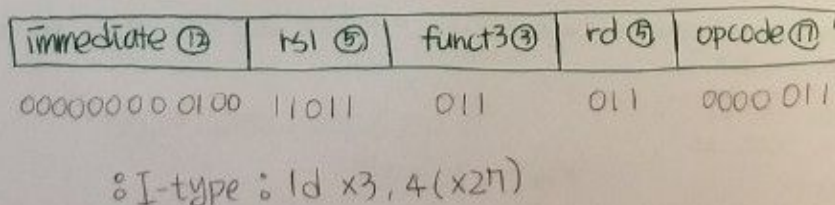 immediate ⑫ rs1 ⑤ funct3③ rd⑤ opcode⑦
000000000100 11011 011 011 0000011
: I-type : ld x3, 4(x27)